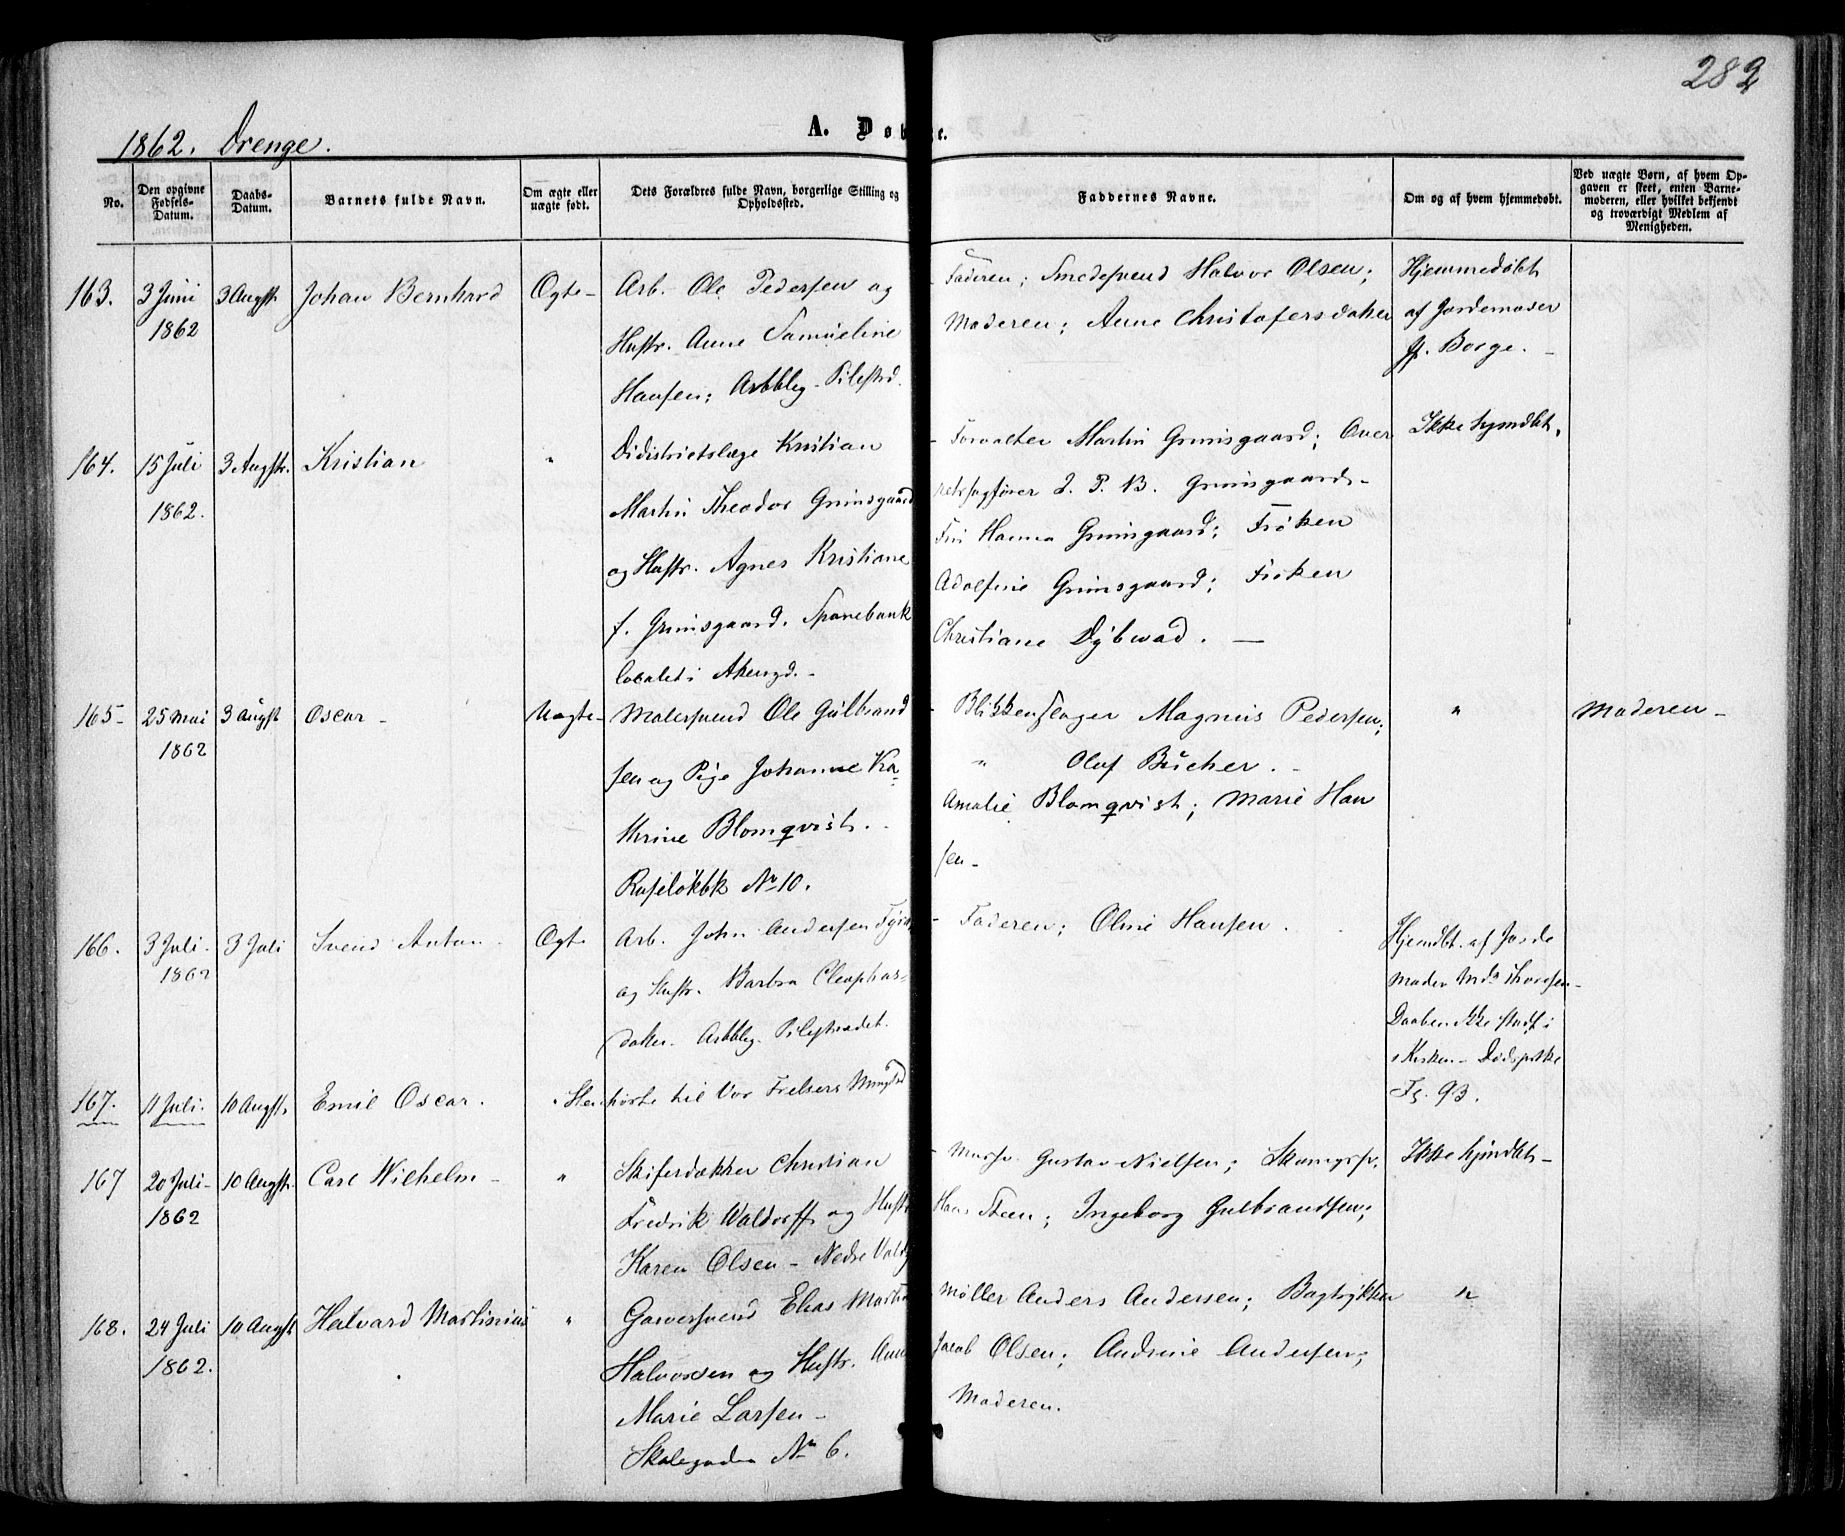 282
1862. Drenge.
A. Døbte.
No.
Den opgivne Fødsels-Datum.
Daabs-Datum.
Barnets fulde Navn.
Om ægte eller uægte født.
Dets Forældres fulde Navn, borgerlige Stilling og Opholdssted.
Faddernes Navne.
Om og af hvem hjemmedøbt.
Ved uægte Børn, af hvem Opgaven er skeet, enten Barnemoderen, eller hvilket bekjendt og troværdigt Medlem af Menigheden.
163. 3 Juni 1862 3 Augst Johan Bernhard Ægte-
Arb. Ole Pedersen og
Hustr. Anne Samueline
Hansen; Arbblg. Pilestrd.
Faderen; Smedesvend Halvor Olsen;
Moderen; Anne Christofersdaker
Hjemmedøbt
af Jordemoder
Borge. -
164. 15 Juli 1862. 3 Augstr. Kristian "
Didistrictslæge Kristian
Martin Theodor Grimsgaard
og Hustr. Agnes Kristiane
f. Grimsgaard. Sparebank
localet i Akersgd. -
- Forvalter Martin Grimsgaard; Over
retssagfører J. P. B. Grimsgaard-
Fru Hanna Grimsgaard; Frøken
Adolfine Grimsgaard; Frøken
Christiane Dybwad. -
Ikke hjmdbt.
165- 25 Mai 1862 3 Augst Oscar - Uægte-
Malersvend Ole Gulbrand
sen og Pige Johanne Ka-
thrine Blomqvist. -
Ruseløkbk No 10.
- Blikkenslager Magnus Pedersen;
" Oluf Bucher. -
Amalie Blomqvist; Marie Han
sen-
"
Moderen -
166. 3 Juli- 1862 3 Juli Svend Anton Ægte
Arb. John Andersen
og Hustr. Barbra Cleophas-
daker. Arbblg. Pilestrædet.
- Faderen; Oline Hansen.
Hjemdbt. af Jorde
moder Md. Thoresen-
Daaben ikke stadf. i
Kirken - Dødspikke
Fg. 93.
167. 11 Juli. 10 Augstr. Emil Oscar. "
Henhørte til Vor Frelsers Mengd
167 20 Juli- 1862 10 Augstr. Carl Wilhelm - "
Skiferdækker Christian
Fredrik Waldorff og Hustr
Karen Olsen - Nedre Voldg
- Mursv. Gustav Nielsen;
Hans Steen; Ingeborg Gulbrandsen;
Ikke hjmdbt-
168. 24 Juli 1862. 10 Augst Halvard Martinius "
Garversvend Elias
Halvorsen og Hustr. Anne
Marie Larsen -
Skolegaden No 6.
Møller Anders Andersen;
Jacob Olsen; Andrine Andersen;
Moderen.
"